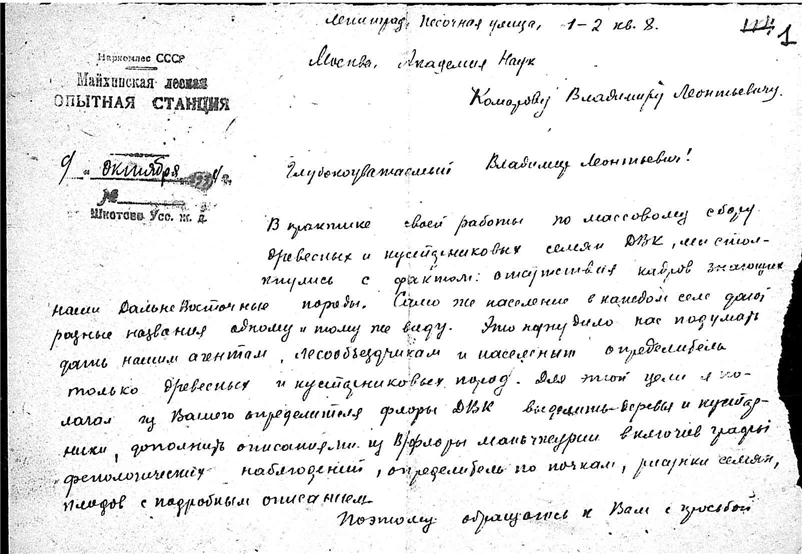 Ленинград, Песочная улица, 1-2 кв. 8.
1
Москва. Академия Наук
Комарову Владимиру Леонтьевичу.
Наркомлес СССР
Майхинская лесная
ОПЫТНАЯ СТАНЦИЯ
9/ „ октября 193 г.
№
Шкотово Усс. ж. д.
Глубокоуважаемый Владимир Леонтьевич!
В практике своей работы по массовому сбору
древесных и кустарниковых семян ДВК, мы стол-
кнулись с фактом: отсутствия кадров знающих
наши ДальнеВосточные породы. Само же население в каждом селе дает
разные названия одному и тому же виду. Это понудило нас подумать
дать нашим агентам, лесообъездчикам и населению определитель
только древесных и кустарниковых пород. Для этой цели я по-
лагал из Вашего определителя флоры ДВК выделить деревья и кустар-
ники, дополнить описаниями из флоры Маньчжурии включив графы
фенологических наблюдений, определитель по почкам, рисунки семян,
плодов с подробным описанием.
Поэтому обращаюсь к Вам с просьбой